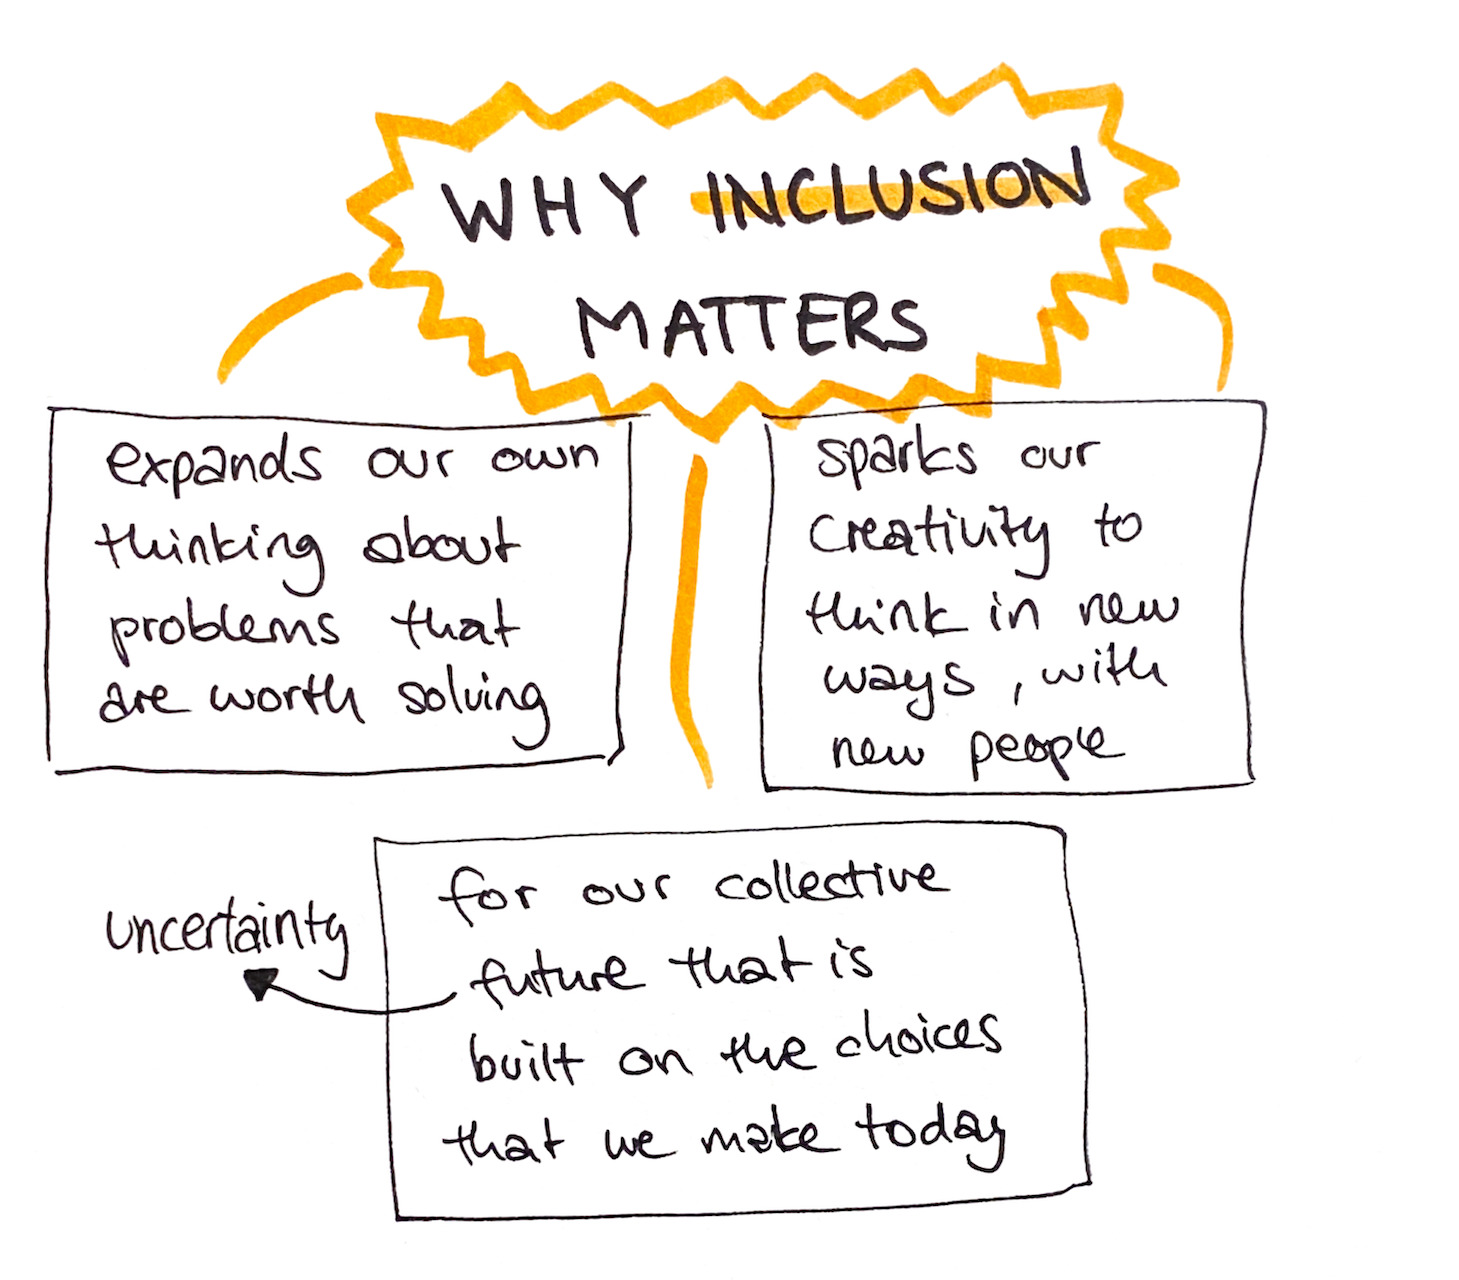 WHY INCLUSION
MATTERS
expands our own
thinking about
problems that
are worth solving
sparks our
creativity to
think in new
ways, with
new people
uncertainty
for our collective
future that is
built on the choices
that we make today